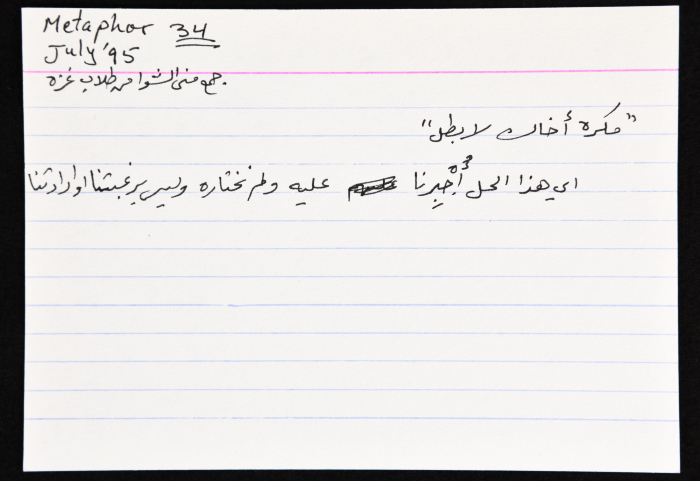 Metaphor 34
July '95
جمع منى الشوا من طلاب غزه.
"مكره أخاك لا بطل"
اي هذا الحل أُجْبِرنا عليه ولم نختاره وليس برغبتنا او ارادتنا